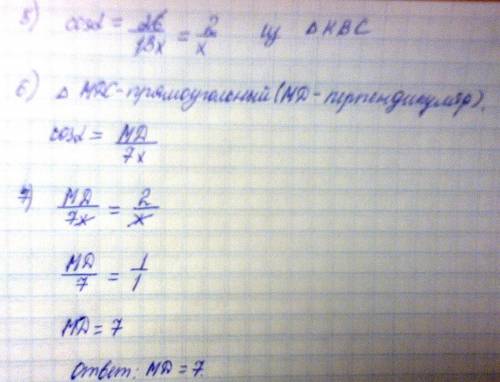 5) cosα = 26/13x = 2/x из △KBC
6) △ MDC-прямоугольный (MD-перпендикуляр).
cosα = MD/7x
7) MD/7x = 2/x
MD/7 = 1/1
MD = 7
Ответ: MD = 7.